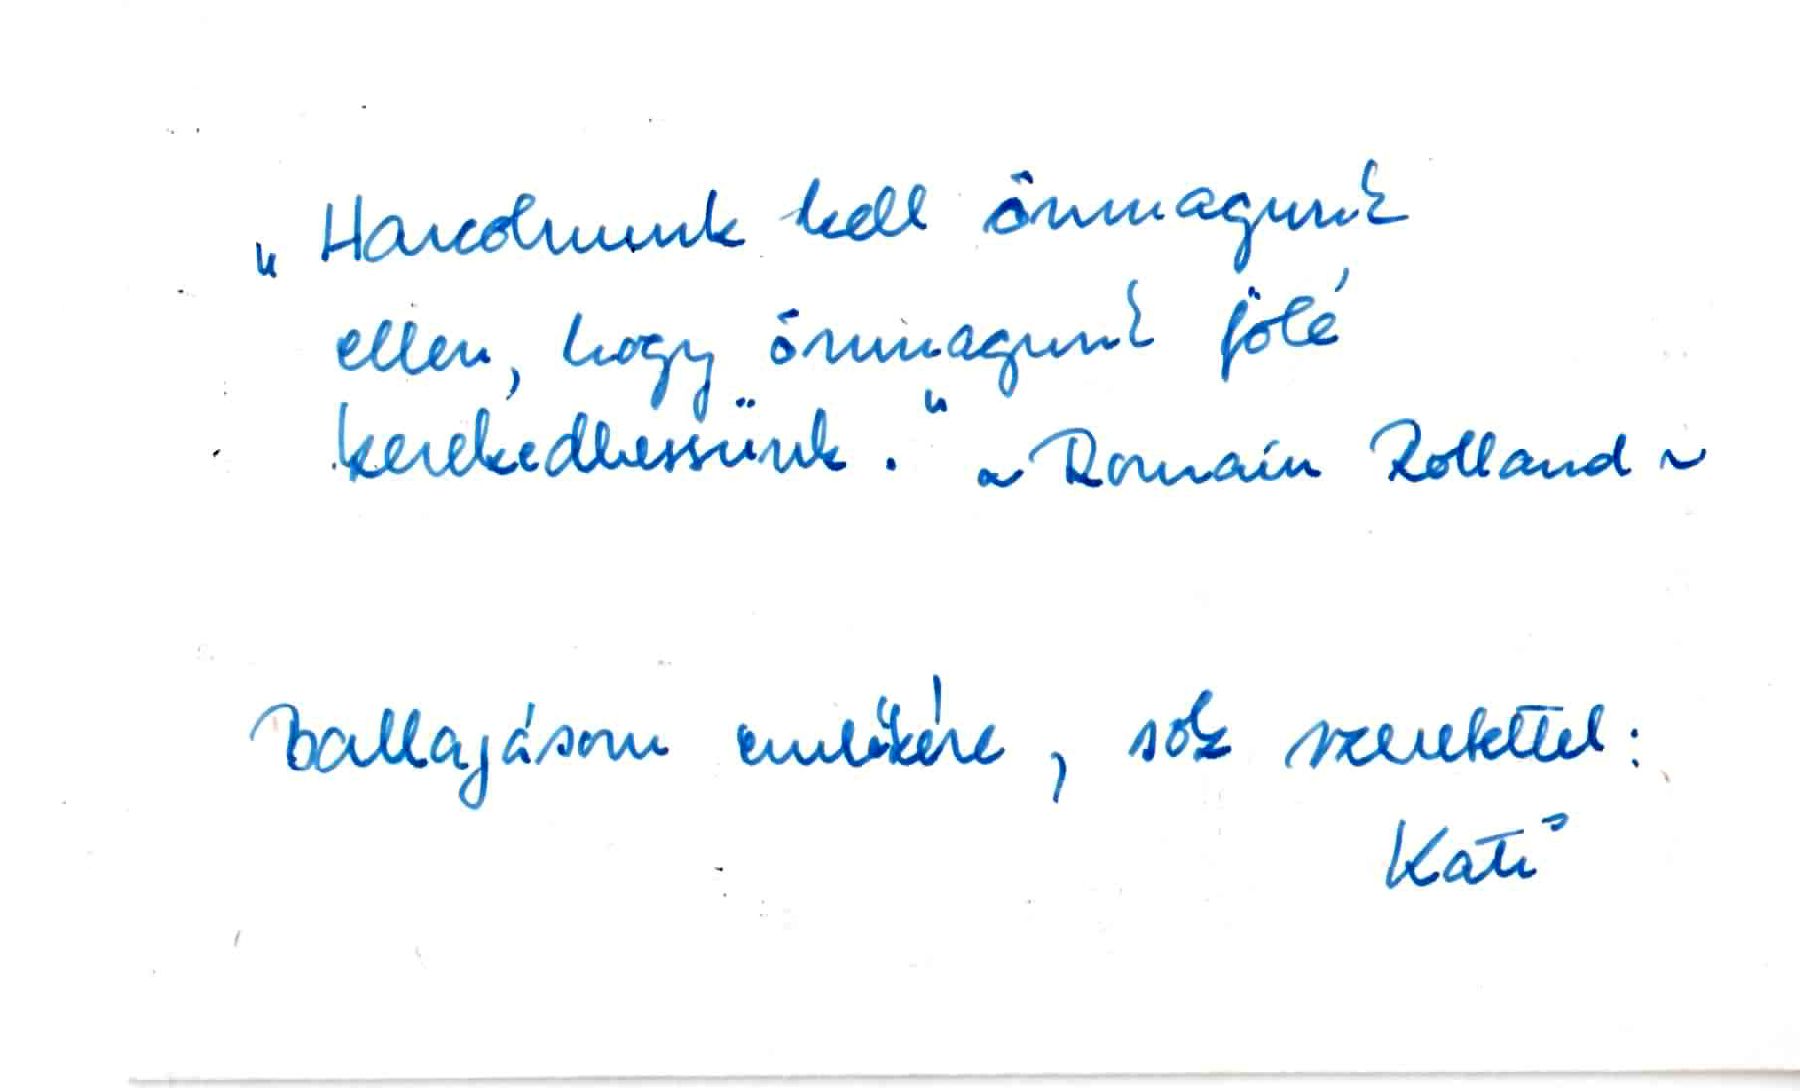 „Harcolnunk kell önmagunk
ellen, hogy önmagunk fölé
kerekedhessünk." ~ Romain Rolland ~
Ballagásom emlékére, sok szeretettel:
Kati